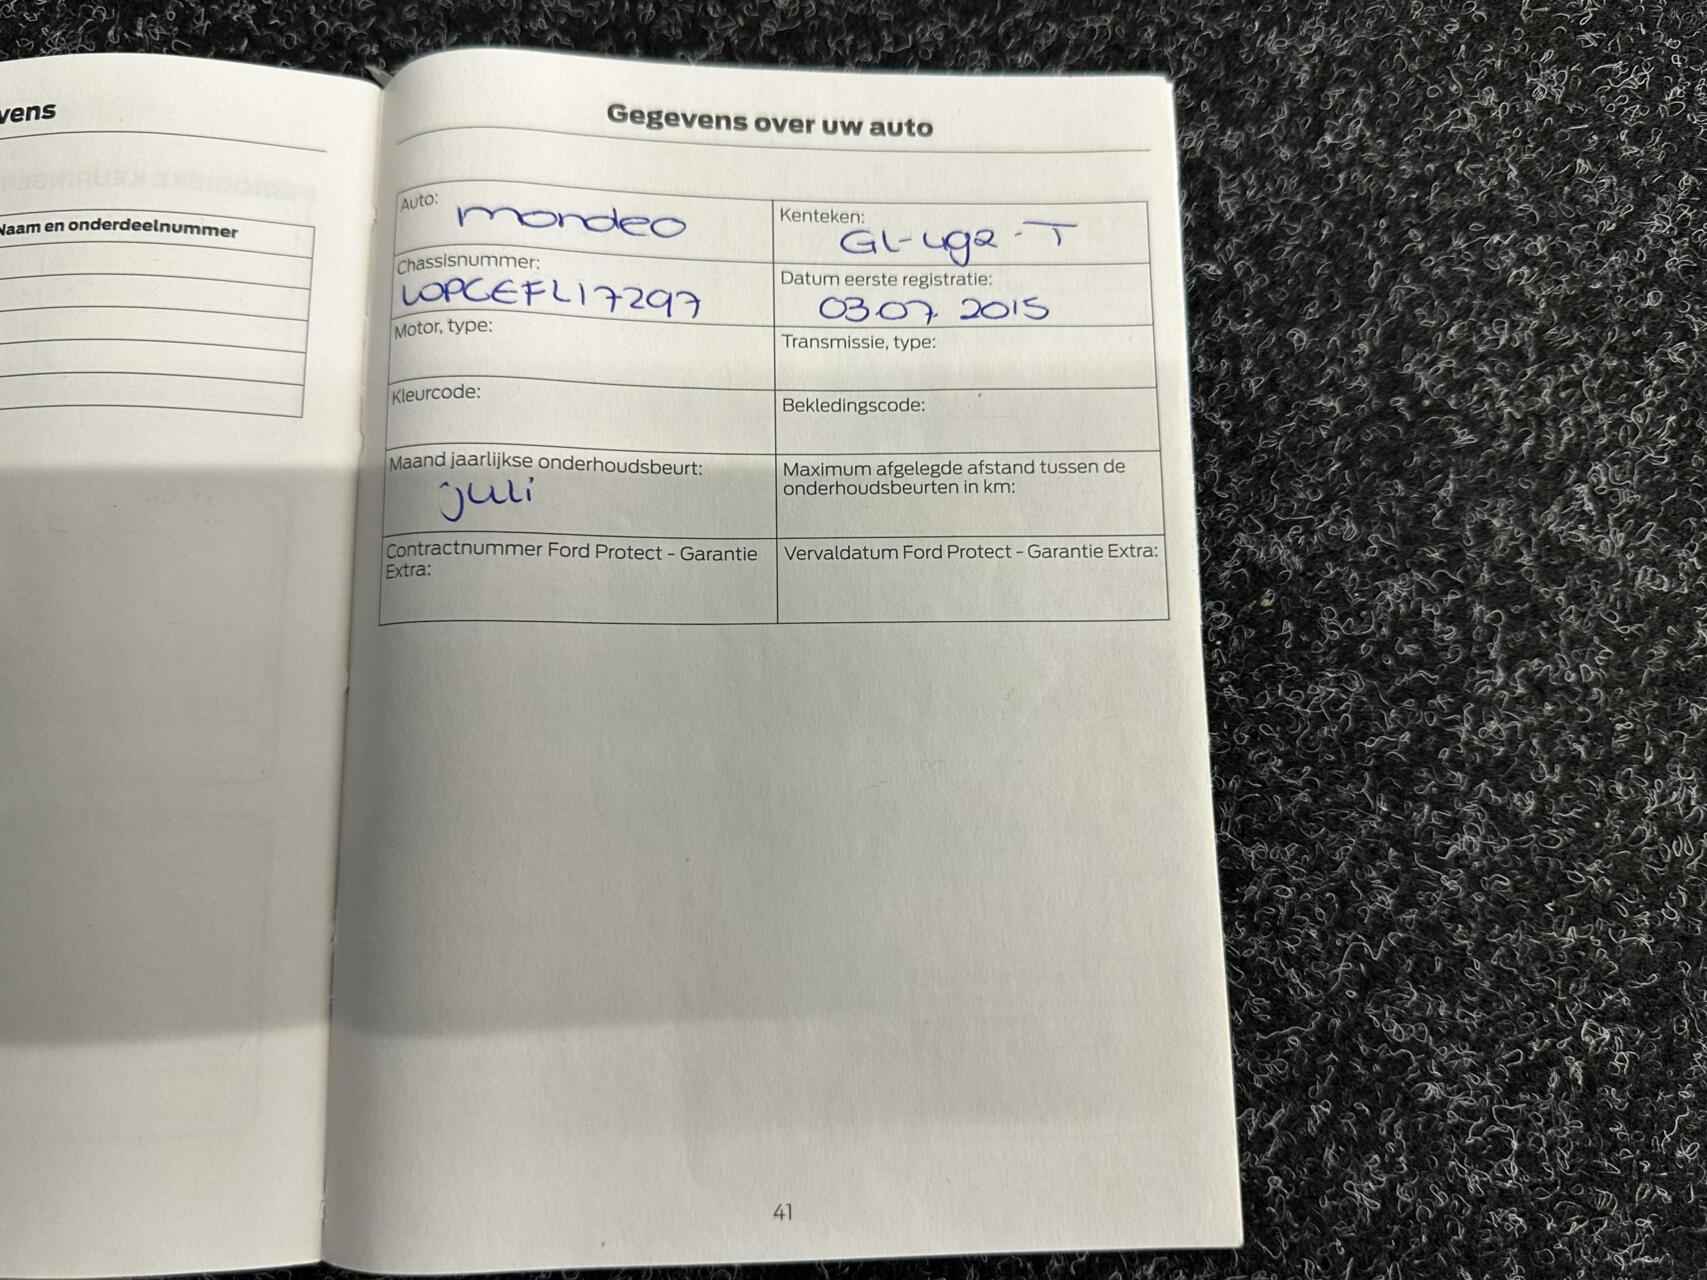 vens
Naam en onderdeelnummer
Gegevens over uw auto
Auto:
mondeo
Kenteken:
GL-492-T
Chassisnummer:
WOPCEFL17297
Datum eerste registratie:
03.07. 2015
Motor, type:
Transmissie, type:
Kleurcode:
Bekledingscode:
Maand jaarlijkse onderhoudsbeurt:
juli
Maximum afgelegde afstand tussen de
onderhoudsbeurten in km:
Contractnummer Ford Protect - Garantie
Extra:
Vervaldatum Ford Protect - Garantie Extra:
41